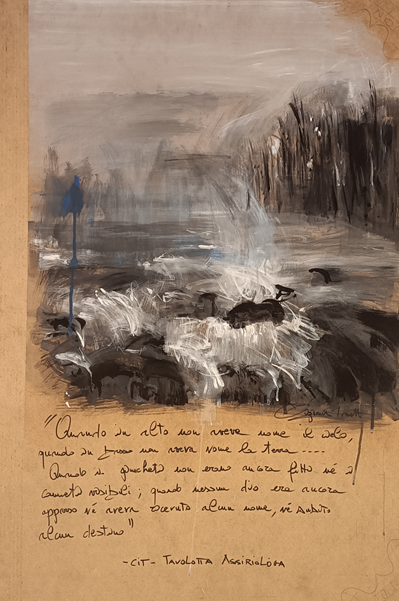 "Quando in alto non aveva nome il cielo,
quando in basso non aveva nome la terra ....
Quando i giuncheti non erano ancora fitti né i
canneti visibili; quando nessun dio era ancora
apparso né aveva ricevuto alcun nome, né subito
alcun destino"
-CIT- TAVOLETTA ASSIRIOLOGA